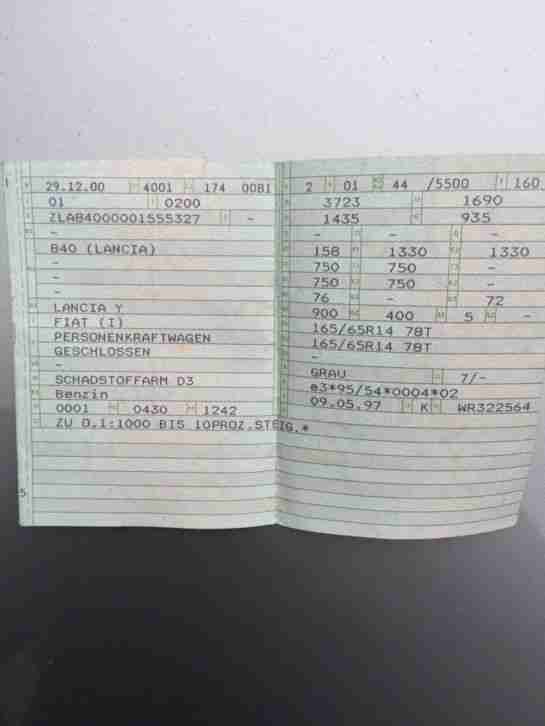 1
29.12.00 4001 174 0081
01 0200
ZLA84000001555327 -
-
840 (LANCIA)
-
-
-
LANCIA Y
FIAT (I)
PERSONENKRAFTWAGEN
GESCHLOSSEN
-
SCHADSTOFFARM D3
Benzin
0001 0430 1242
ZU 0.1:1000 BIS 10PROZ.STEIG.*
5
2 01 44 /5500 160
3723 1690
1435 935
- - -
158 1330 1330
750 750 -
750 750 -
76 - 72
900 400 5 -
165/65R14 78T
165/65R14 78T
-
GRAU 7/-
e3*95/54*0004*02
09.05.97 K WR322564